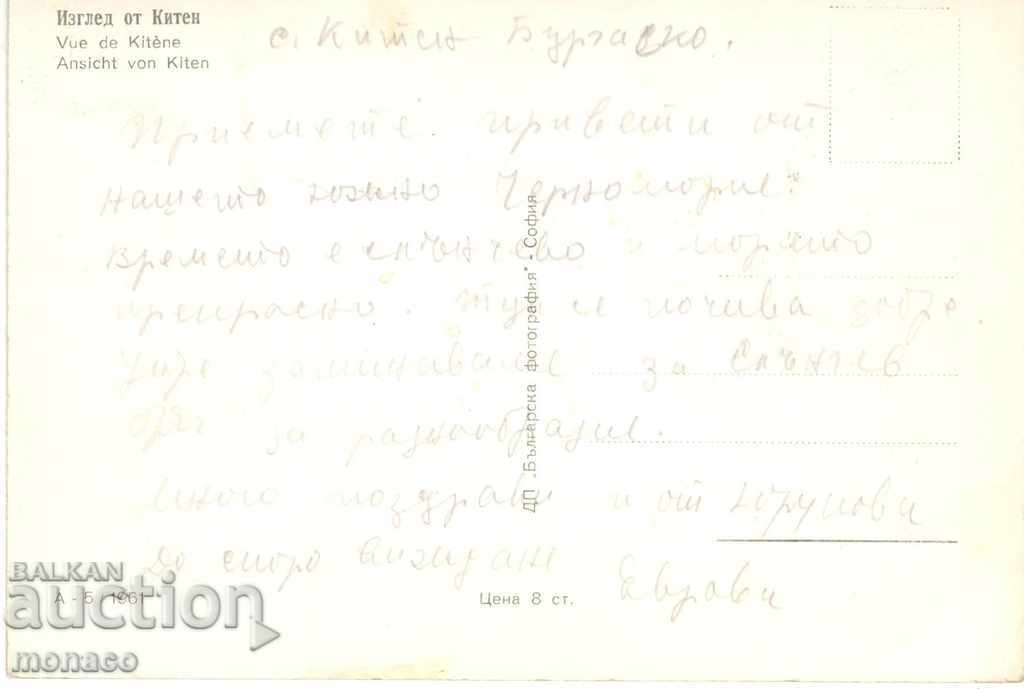 Изглед от Китен
Vue de Kitène
Ansicht von Kiten
с. Китен Бургаско.
Приемете привети от
нашето южно Черноморие.
Времето е слънчево и морето
прекрасно. Тук се почива добре.
Утре заминаваме за Слънчев
бряг за разнообразие.
Много поздрави и от
До скоро виждане
ДП „Българска фотография" - София
А - 5 1961
Цена 8 ст.
BALKAN
auction
monaco